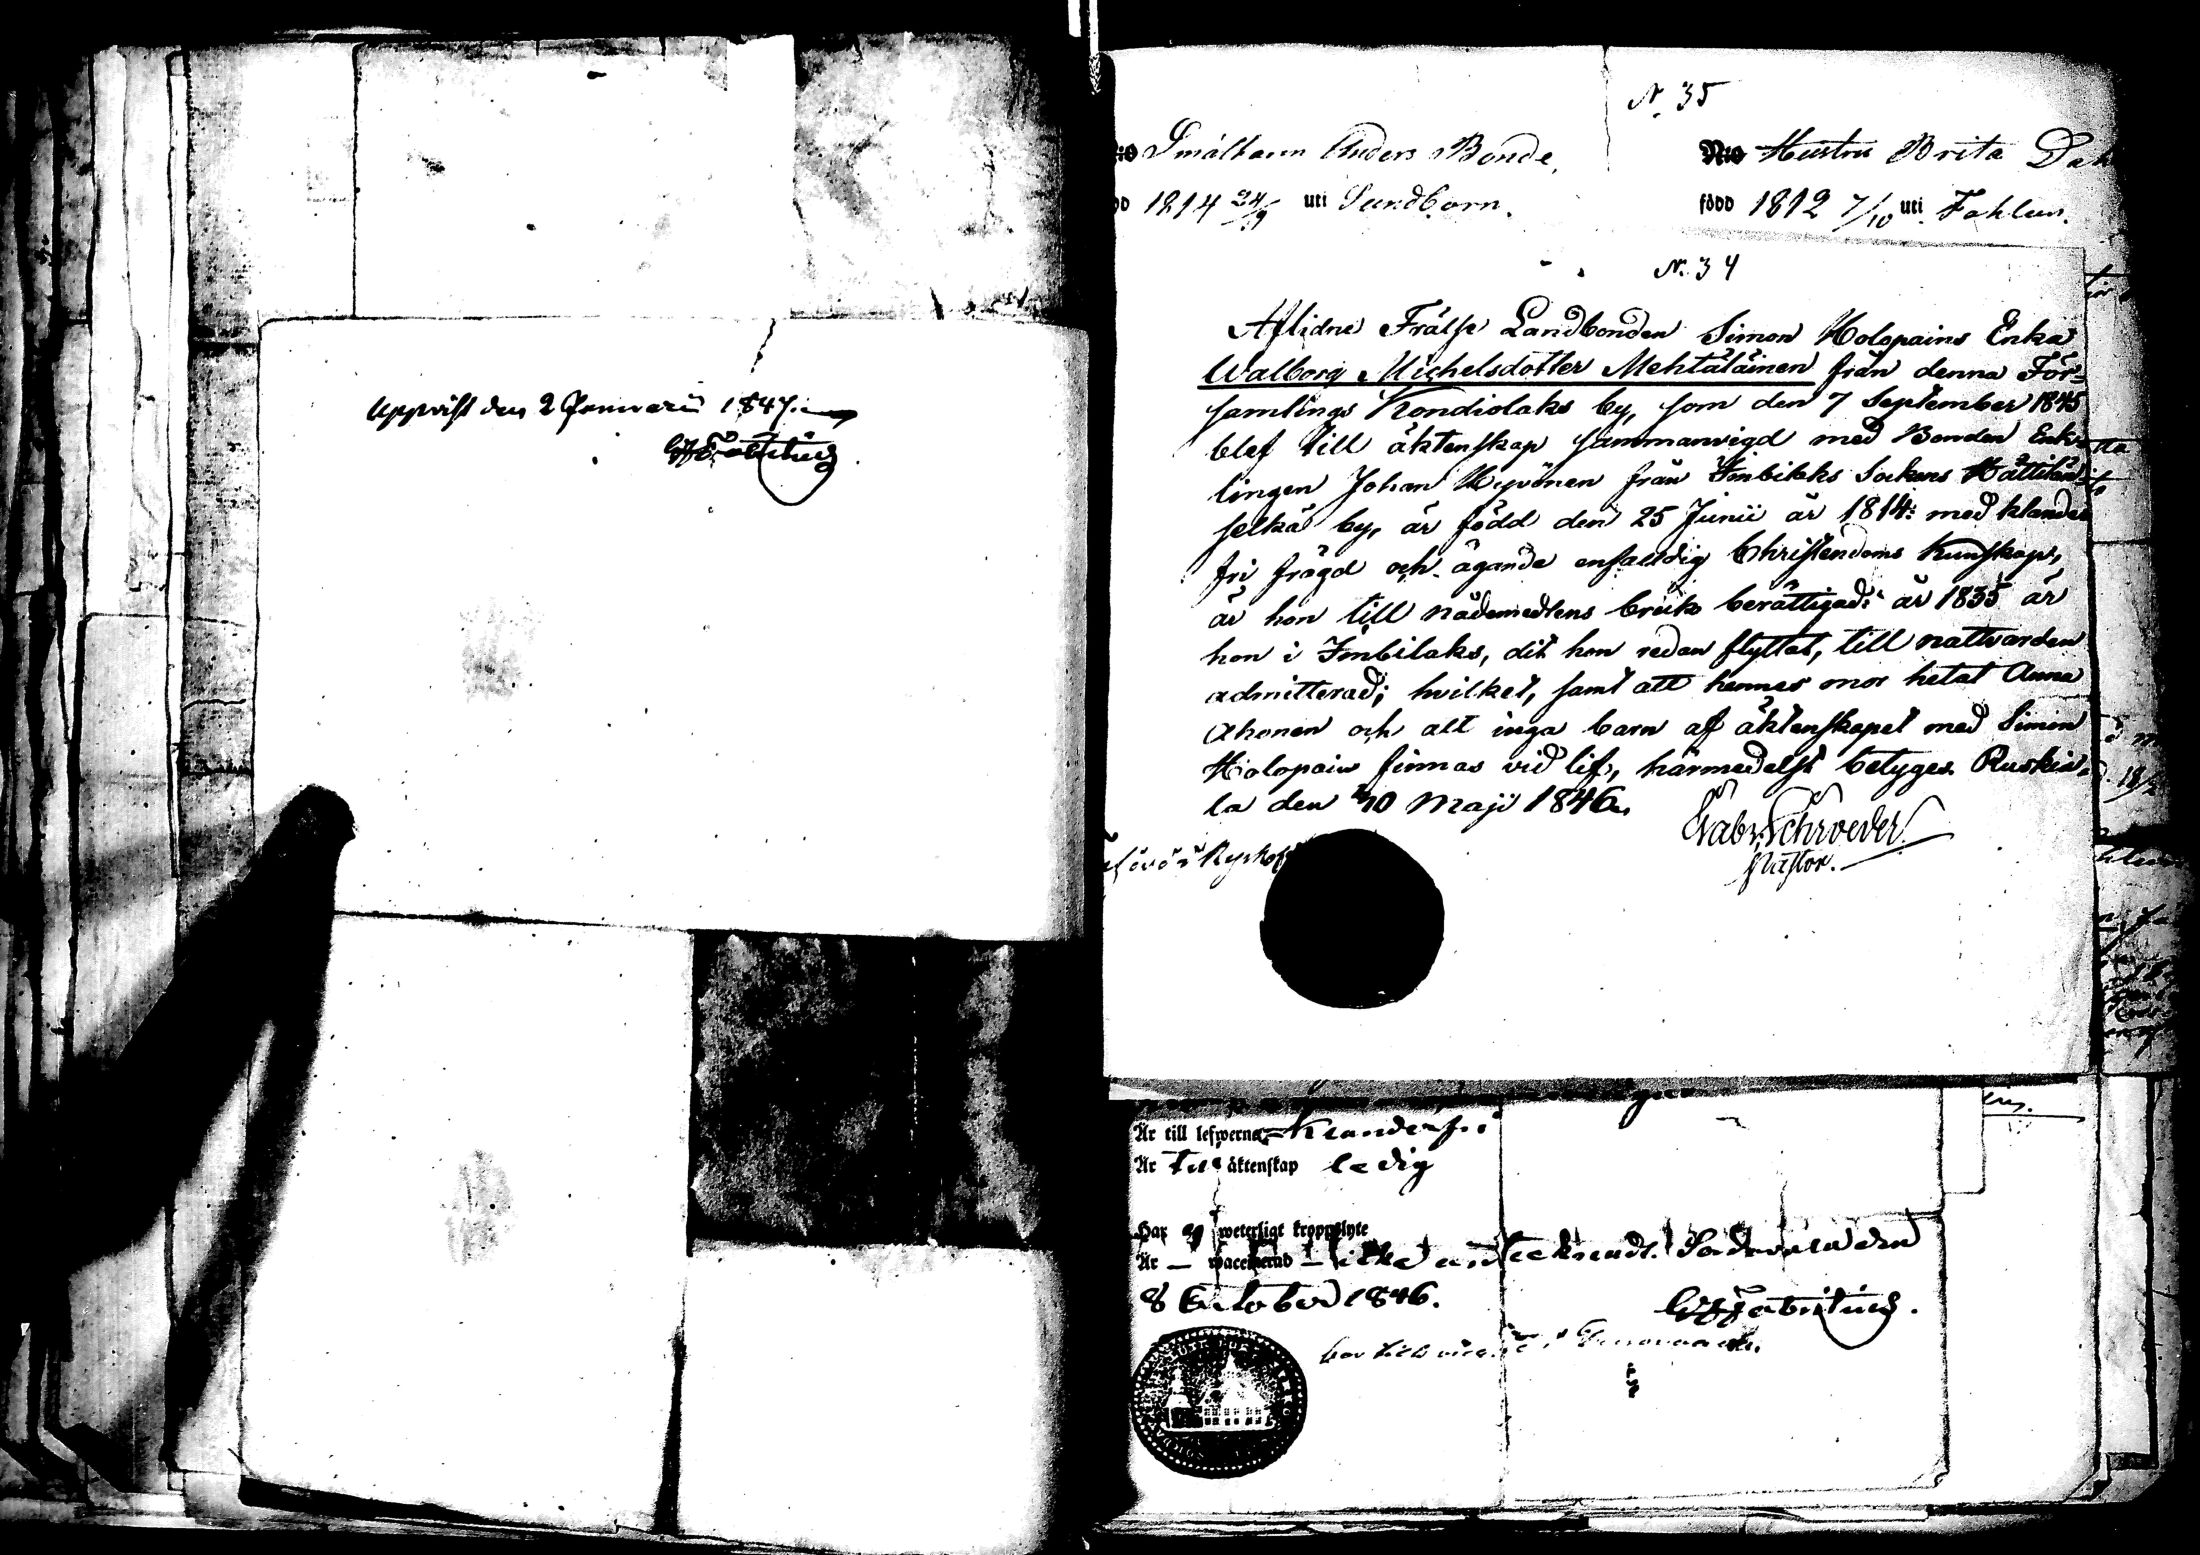 Uppvist den 2 Januari 1847.
N. 35
Smältaren Anders Bonde,
Hustru Brita
1814 24/9 uti Sundborn.
född 1812 7/10 uti Fahlun.
N. 34
Aflidne Frälse Landbonden Simon Holopains Enka
Walborg Michelsdotter Mehtäläinen från denna För-
samlings Kondiolaks by, som den 7 September 1845
blef till äktenskap sammanvigd med Bonden Enk-
lingen Johan Hyvönen från Imbilaks Sockens
selkä by, är född den 25 Junii år 1814: med klander
fri frägd och ägande enfalldig Christendoms kunskap,
är hon till nådemedlens bruk berättigad: år 1835 är
hon i Imbilaks, dit hon redan flyttat, till nattvarden
admitterad; hvilket, samt att hennes mor hetat Anna
Ahonen och att inga barn af äktenskapet med Simon
Holopain finnas vid lif, härmedelst betyges. Ruskia-
la den 10 Maji 1846.
Gabr. Schroeder
Pastor.
Är till lefwerne Klanderfri
Är till äktenskap ledig
Har ej weterligt kroppslyte
Är — waccinerad — icke
8 October 1846.